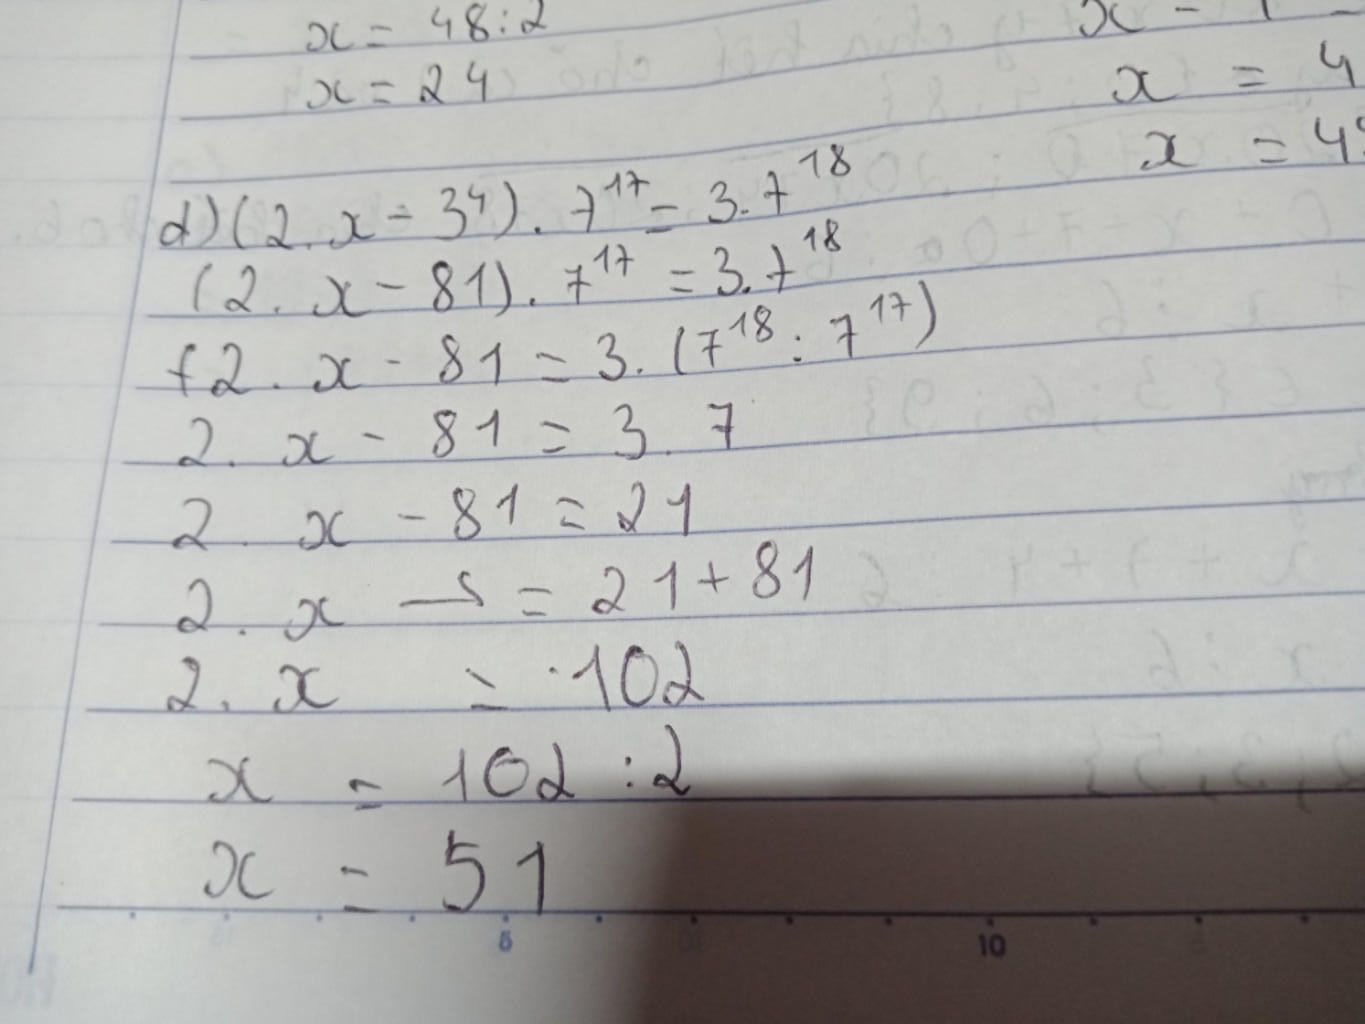 x = 48:2
x = 24
x - 1
x = 4
x = 48
d) (2.x - 3⁴) . 7¹⁷ = 3.7¹⁸
(2. x - 81) . 7¹⁷ = 3.7¹⁸
2 . x - 81 = 3. (7¹⁸ : 7¹⁷)
2. x - 81 = 3. 7
2 . x - 81 = 21
2 . x = 21 + 81
2 . x = 102
x = 102 : 2
x = 51
5 10